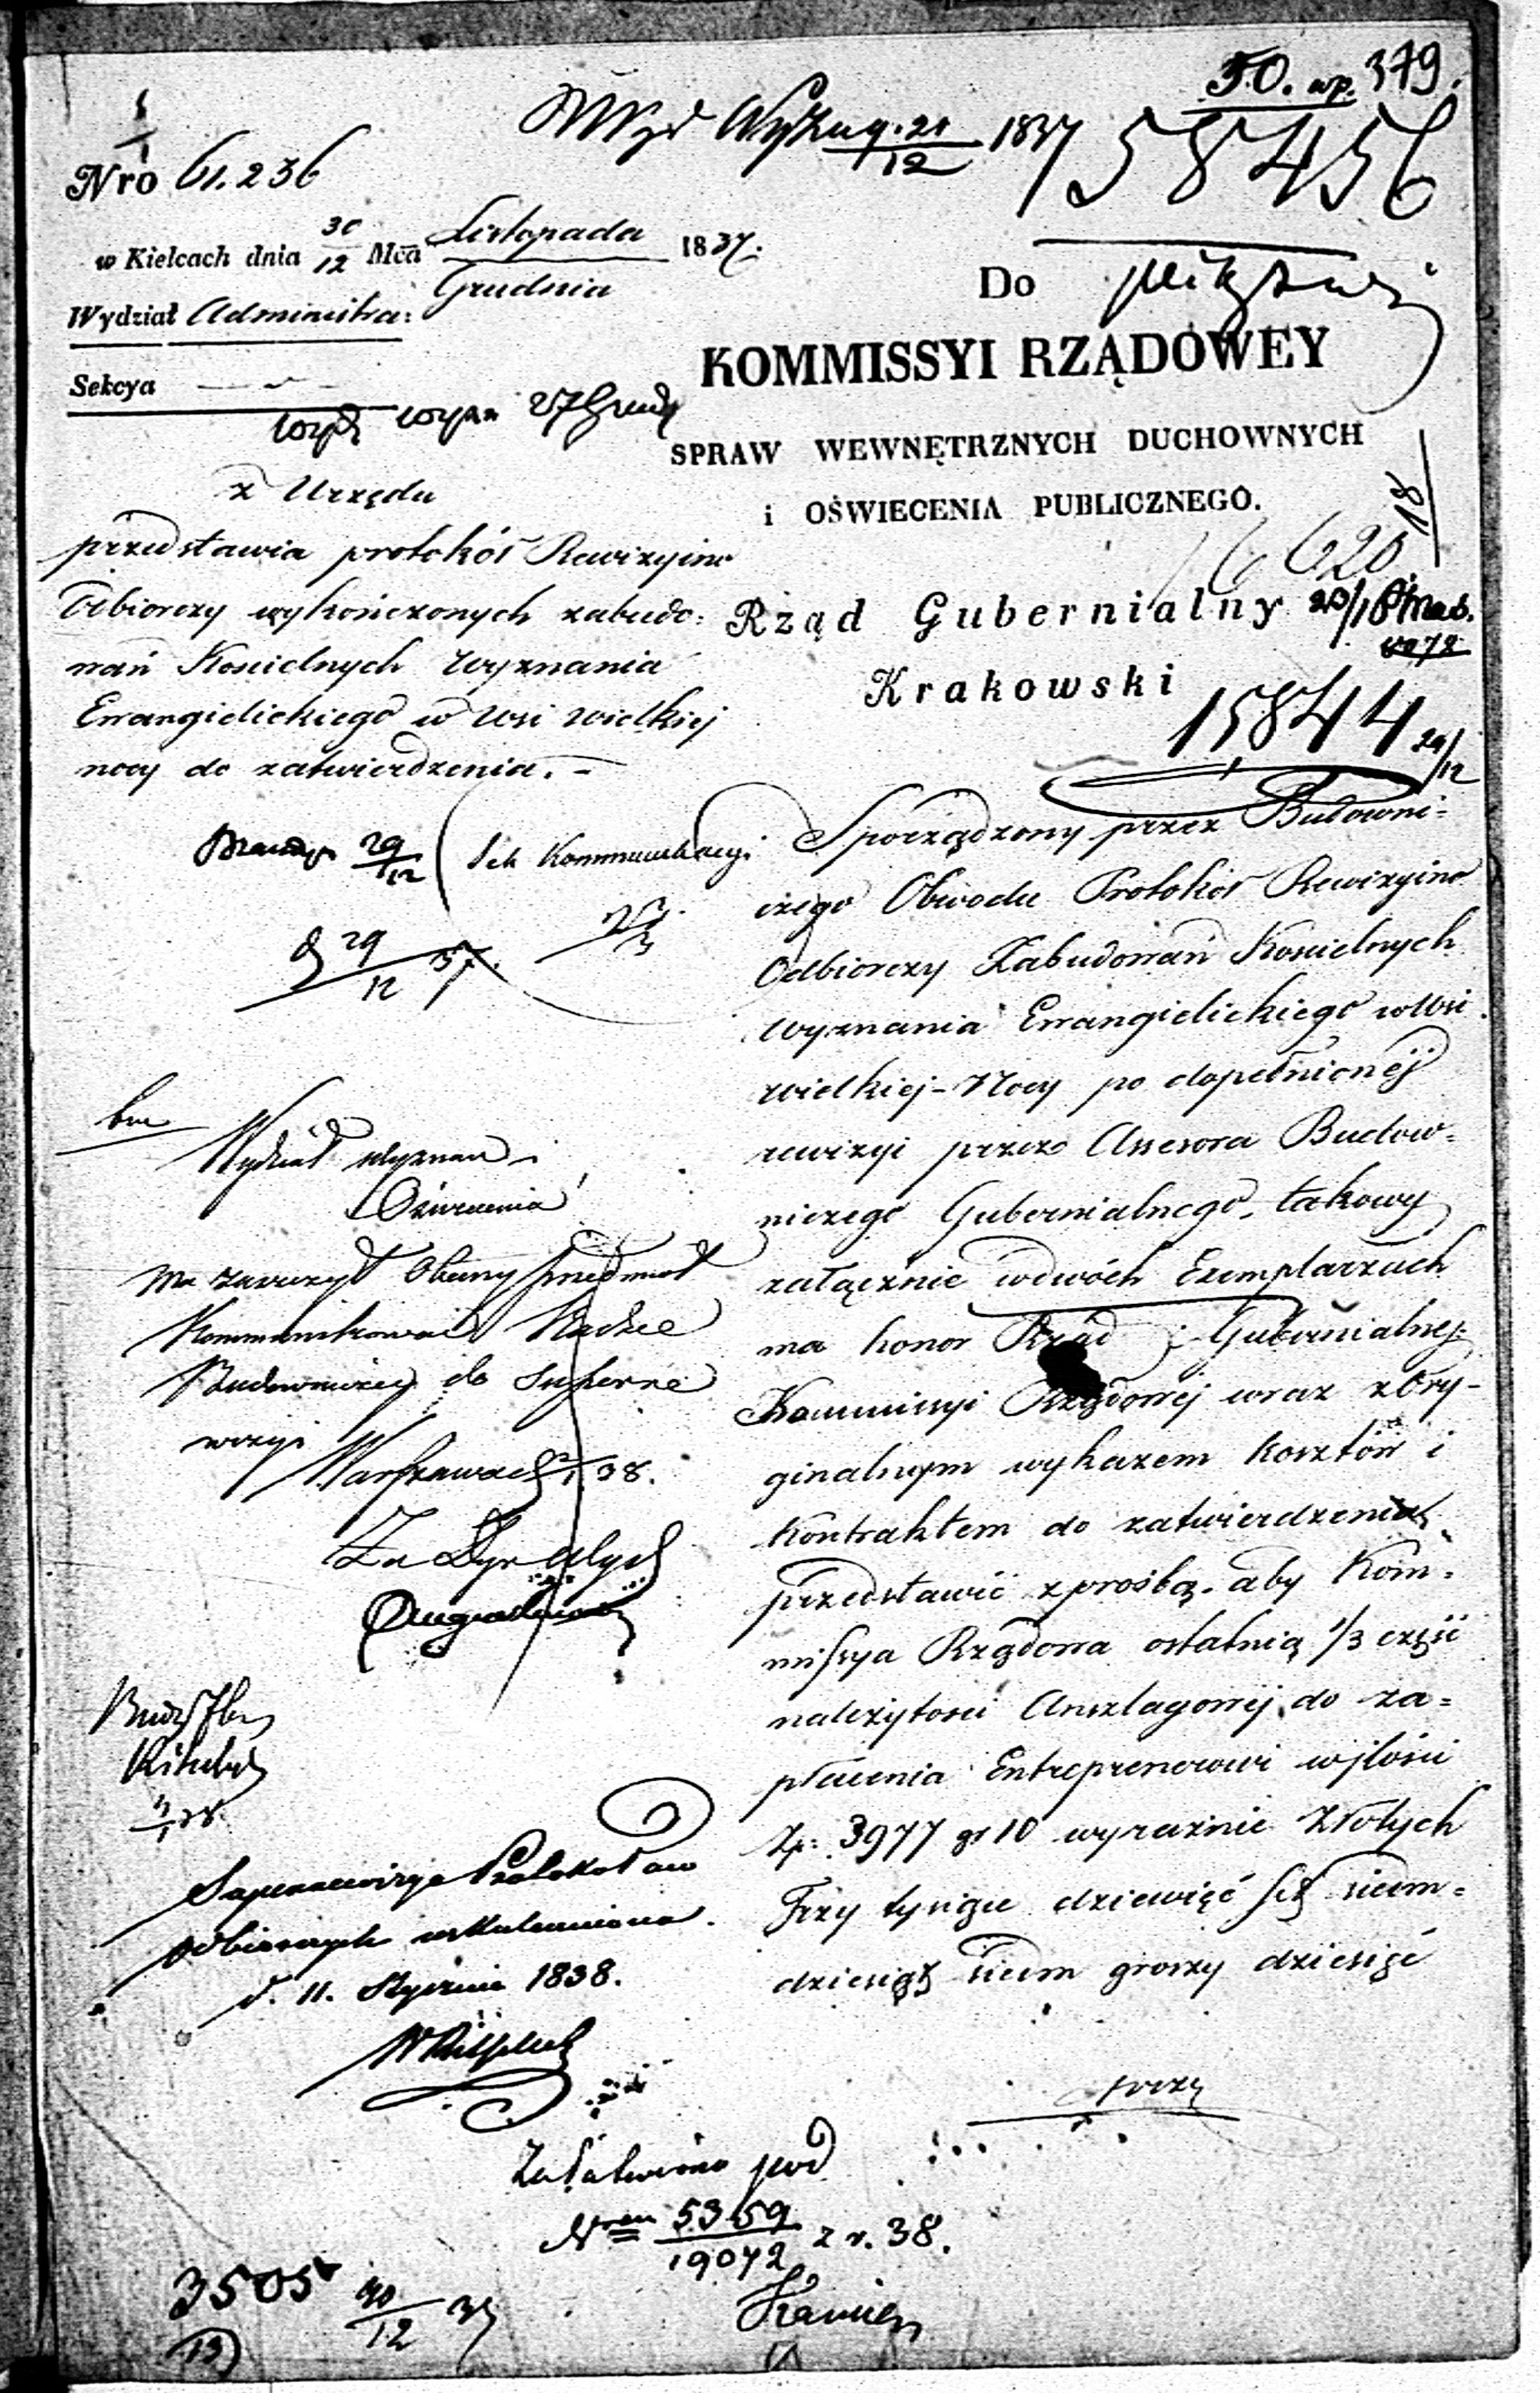 50. wp. 379.
21/12 1837
58456
Nro 61.236
w Kielcach dnia 30/12 Mca Listopada/Grudnia 1837.
Wydział Administra:
Sekcya
wyp 27 Grud
Do
KOMMISSYI RZĄDOWEY
SPRAW WEWNĘTRZNYCH DUCHOWNYCH
i OŚWIECENIA PUBLICZNEGO.
6620
18
Rząd Gubernialny
Krakowski
15844 29/12
z Urzędu
przedstawia protokół Rewizyino
Odbiorczy wykończonych zabudo:
wań Kościelnych wyznania
Ewangielickiego w wsi wielkiej
nocy do zatwierdzenia. –
29/12
Sek Kommunikacyi
29/12 37.
Sporządzony przez Budowni-
czego Obwodu Protokół Rewizyino
Odbiorczy Zabudowań Kościelnych
wyznania Ewangielickiego w Wsi
wielkiej-Nocy po dopełnionéj
rewizyi przez Assesora Budow-
niczego Gubernialnego, takowy
załącznie w dwóch Exemplarzach
ma honor Rząd Gubernialny
Kommissyi Rządowéj wraz z Ory-
ginalnym wykazem kosztów i
kontraktem do zatwierdzenia
przedstawić z prośbą, aby Kom-
missya Rządowa ostatnią 1/3 część
należytości Anszlagowéj do za-
płacenia Entreprenerowi w jlości
Zp: 3977 gr 10 wyraźnie Złotych
Trzy tysiące dziewięć set siedm-
dziesiąt siedm groszy dziesięć
Wydział Wyznań i
Oświecenia
ma zaszczyt Obecny przedmiot
Kommunikować Radzie
Budowniczej do superre
wizyi
Warszawa d 2/1 38.
Za Dyr Wydz
Superrewizya Protokołów
odbiorczych uskuteczniona.
d. 11. Stycznia 1838.
Załatwiono pod
Nrem 5359/19072 z r. 38.
3505
30/12 37
13